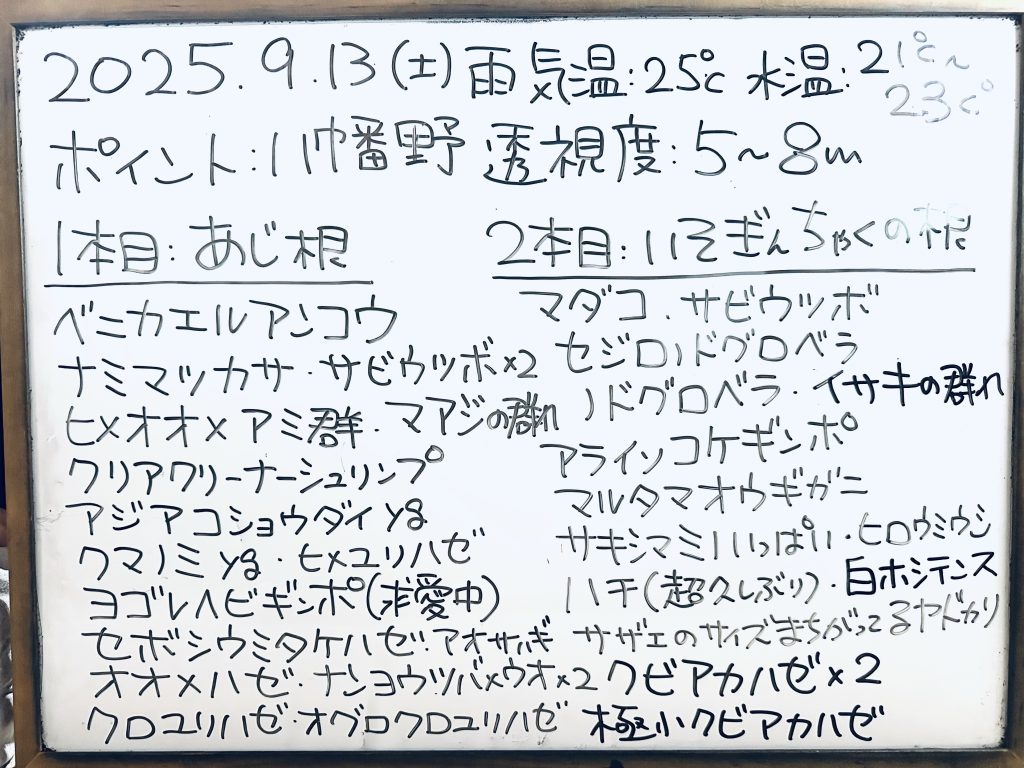 2025.9.13(土)雨 気温:25℃ 水温:21℃~23℃
ポイント:八幡野 透視度:5~8m
1本目:あじ根
ベニカエルアンコウ
ナミマツカサ・サビウツボ×2
ヒメオオメアミ群・マアジの群れ
クリアクリーナーシュリンプ
アジアコショウダイyg
クマノミyg・ヒメユリハゼ
ヨゴレヘビギンポ(求愛中)
セボシウミタケハゼ・アオサハギ
オオメハゼ・ナンヨウツバメウオ×2
クロユリハゼ・オグロクロユリハゼ
2本目:いそぎんちゃくの根
マダコ・サビウツボ
セジロノドグロベラ
ノドグロベラ・イサキの群れ
アライソコケギンポ
マルタマオウギガニ
サキシマミノいっぱい・ヒロウミウシ
ハチ(超久しぶり)・白ホシテンス
サザエのサイズまちがってるヤドカリ
クビアカハゼ×2
極小クビアカハゼ